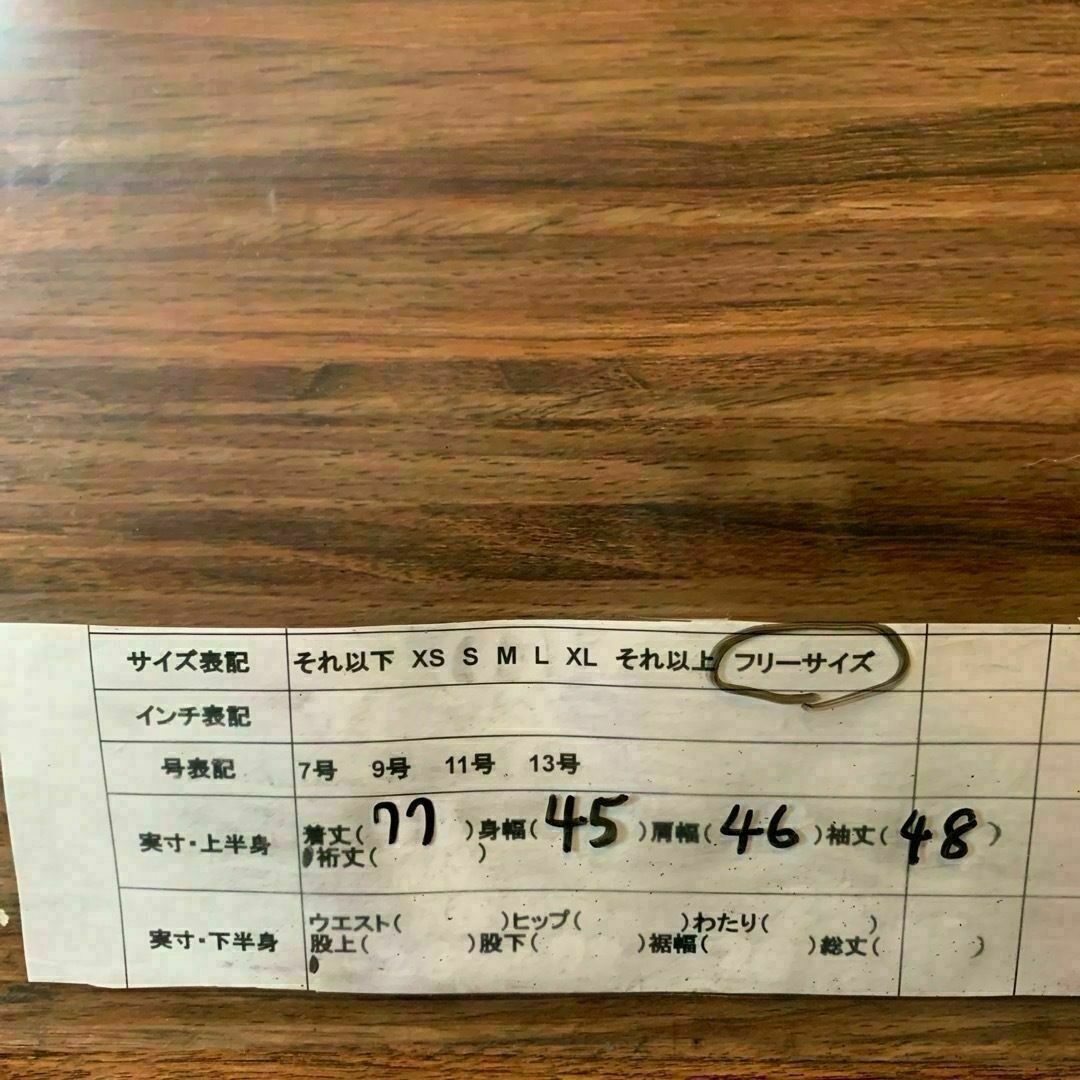 サイズ表記 それ以下 XS S M L XL それ以上 フリーサイズ
インチ表記
号表記 7号 9号 11号 13号
実寸・上半身 着丈( 77 )身幅( 45 )肩幅( 46 )袖丈( 48 )
裄丈( )
実寸・下半身 ウエスト( )ヒップ( )わたり( )
股上( )股下( )裾幅( )総丈( )